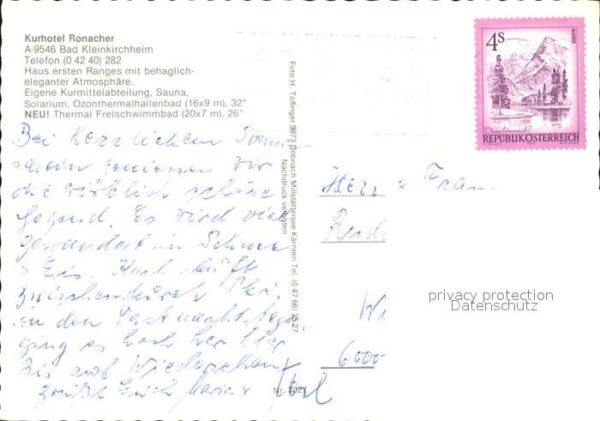 Kurhotel Ronacher
A-9546 Bad Kleinkirchheim
Telefon (0 42 40) 282
Haus ersten Ranges mit behaglich-
eleganter Atmosphäre.
Eigene Kurmittelabteilung, Sauna,
Solarium, Ozonthermalhallenbad (16x9 m), 32°
NEU! Thermal Freischwimmbad (20x7 m), 26°
Bei herrlichem Sonnen
schein geniessen wir
die wirklich schöne
Gegend. Es wird viel
gewandert in Schnee
+ Eis. Karl läuft
zwischendurch Ski.
in den Fastnachtstagen
ging es hoch her hier
Bis auf Wiedersehen
grüßt Euch
Foto H. Tollinger 9873 Döbriach Millstättersee Kärnten Tel. (0 47 66) 26 27
Nachdruck verboten
4S
REPUBLIK ÖSTERREICH
Herr + Frau
W
6000
privacy protection
Datenschutz